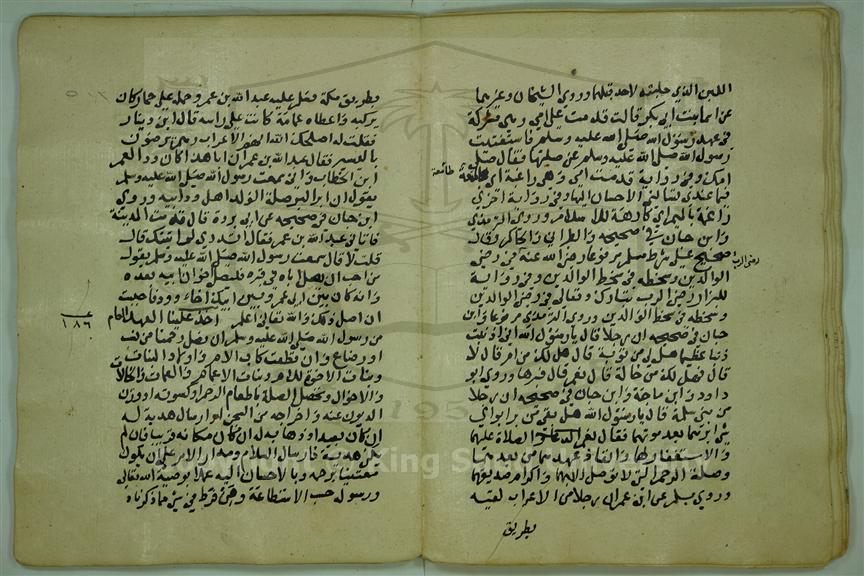 اللبن الذي حلبته لاحد قبلها وروي الشيخان وغيرهما
عن اسما بنت ابي بكر قالت قدمت علي امي وهي مشركة
في عهد رسول الله صلى الله عليه وسلم فاستفتيت
رسول الله صلى الله عليه وسلم عن صلتها فقال صلي
امك وفي رواية قدمت امي وهي راغبة اي طامعة
فيما عندي تسالني الاحسان اليها وفي رواية اخري
راغمة بالميم اي كارهة للاسلام وروي الترمذي
وابن حبان في صحيحه والطبراني والحاكم وقال
صحيح علي شرط مسلم مرفوعا رضي الله عنه في رضي
الوالدين وسخطه في سخط الوالدين وفي رواية
للبزار رضي الرب تبارك وتعالي في رضي الوالدين
وسخطه في سخط الوالدين وروي الترمذي مرفوعا وابن
حبان في صحيحه ان رجلا قال يا رسول الله اني اذنبت
ذنبا عظيما هل لي من توبة قال هل لك من ام قال لا
قال فهل لك من خالة قال نعم قال فبرها وروي ابو
داود وابن ماجة وابن حبان في صحيحه ان رجلا
من بني سلمة قال يا رسول الله هل بقي من بر ابواي
شي ابرهما بعد موتهما فقال نعم الدعا والصلاة عليهما
والاستغفار لهما وانفاذ عهدهما من بعدهما
وصلة الرحم التي لا توصل الا بهما واكرام صديقهما
وروي مسلم عن ابن عمر ان رجلا من الاعراب لقيه
بطريق
طامعة
رضى الرب
بطريق مكة فسلم عليه عبد الله بن عمر وحمله علي حمار كان
يركبه واعطاه عمامة كانت علي راسه قال ابن دينار
فقلت له اصلحك الله انهم الاعراب وهم يرضون
باليسير فقال عبد الله بن عمر ان ابا هذا كان ود العمر
ابن الخطاب واني سمعت رسول الله صلى الله عليه وسلم
يقول ان ابر البر صلة الولد اهل ود ابيه وروي
ابن حبان في صحيحه عن ابي بردة قال قدمت المدينة
فاتاني عبد الله بن عمر فقال اتدري لم اتيتك قال
قلت لا قال سمعت رسول الله صلى الله عليه وسلم يقول
من احب ان يصل اباه في قبره فليصل اخوان ابيه بعده
وانه كان بين ابي عمر وبين ابيك اخاء وود فاحببت
ان اصل ذلك والله تعالى اعلم اخذ علينا العهد العام
من رسول الله صلى الله عليه وسلم ان نصل رحمنا من نسب
او رضاع وان قطعت كاب الام واولاد البنات
وبنات الاخوة للام وبنات الاعمام والعمات والخالات
والاخوال وتحصل الصلة باطعام الرحم او كسوته او وزن
الديون عنه واخراجه من السجن او ارسال هدية له
ان كان بعيدا وذهابه له ان كان مكانه قريبا فان لم
يكن هدية فارسال السلام ومدار الامر علي ان يكون
معتنيا برحمه وبالاحسان اليه عملا بوصية الله تعالى
ورسوله حسب الاستطاعة ومتى فرط في شي مما ذكرناه
١٨٦